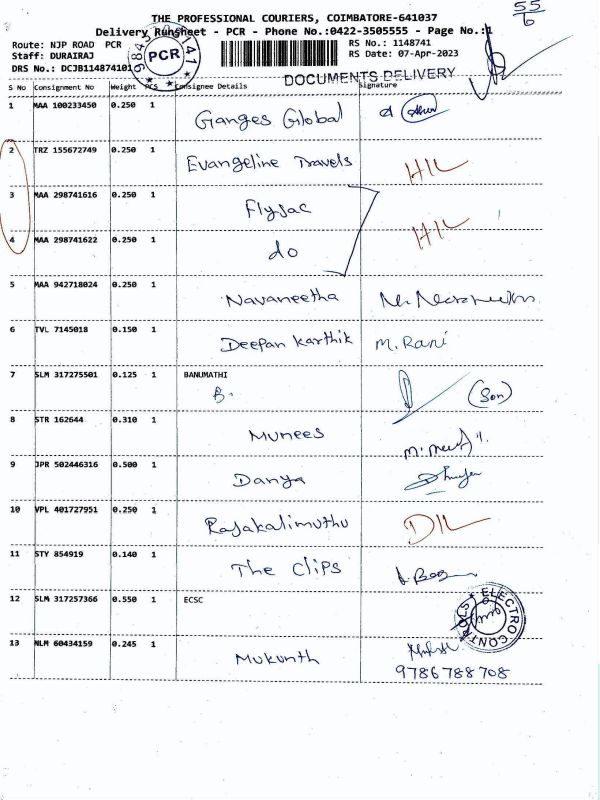 55
6
THE PROFESSIONAL COURIERS, COIMBATORE-641037
Delivery Runsheet - PCR - Phone No.:0422-3505555 - Page No.:1
Route: NJP ROAD PCR
RS No.: 1148741
Staff: DURAIRAJ
RS Date: 07-Apr-2023
DRS No.: DCJB114874101
PCR
DOCUMENTS DELIVERY
S No Consignment No Weight PCS Consignee Details Signature
1 MAA 100233450 0.250 1 Ganges Global
2 TRZ 155672749 0.250 1 Evangeline Travels
3 MAA 298741616 0.250 1 Flyjac
4 MAA 298741622 0.250 1 do
5 MAA 942718024 0.250 1 Navaneetha
6 TVL 7145018 0.150 1 Deepan Karthik M. Rani
7 SLM 317275501 0.125 1 BANUMATHI
B. (Son)
8 STR 162644 0.310 1 Munees
9 JPR 502446316 0.500 1 Danya
10 VPL 401727951 0.250 1 Rajakalimuthu
11 STY 854919 0.140 1 The Clips
12 SLM 317257366 0.550 1 ECSC
ELECTRO CONTROLS
13 NLM 60434159 0.245 1 Mukunth
9786788708